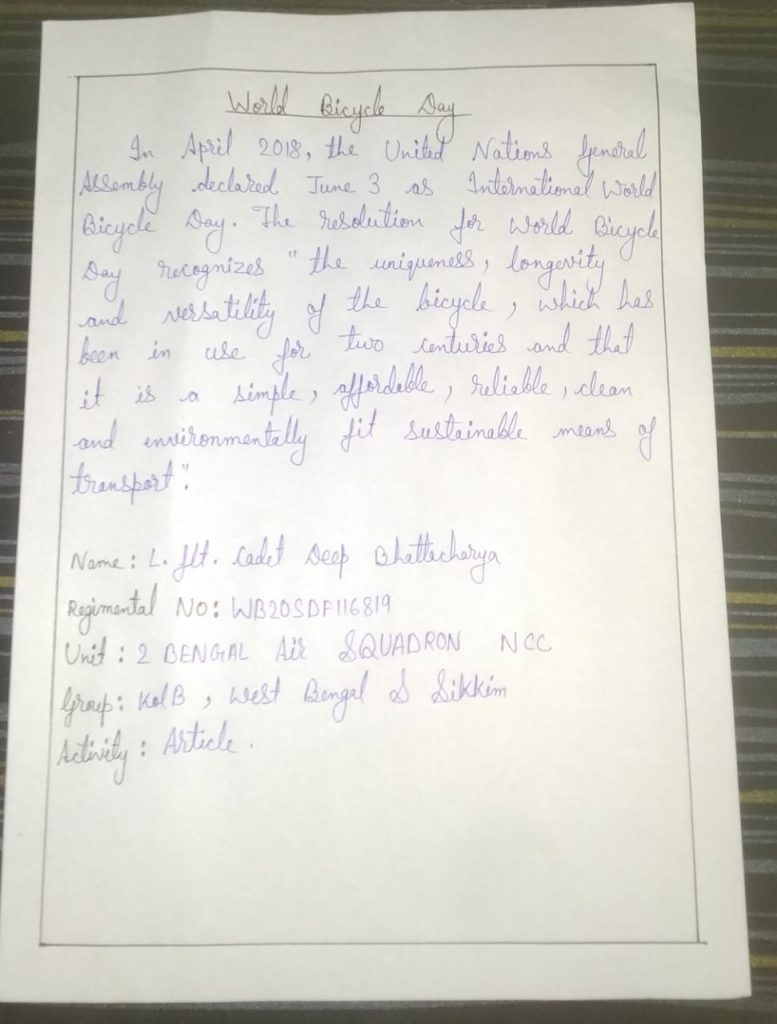 World Bicycle Day
In April 2018, the United Nations General
Assembly declared June 3 as International World
Bicycle Day. The resolution for World Bicycle
Day recognizes "the uniqueness, longevity
and versatility of the bicycle, which has
been in use for two centuries and that
it is a simple, affordable, reliable, clean
and environmentally fit sustainable means of
transport".
Name: L. flt. Cadet Deep Bhattacharya
Regimental No: WB20SDF116819
Unit: 2 BENGAL Air SQUADRON NCC
Group: Kol B, West Bengal & Sikkim
Activity: Article.